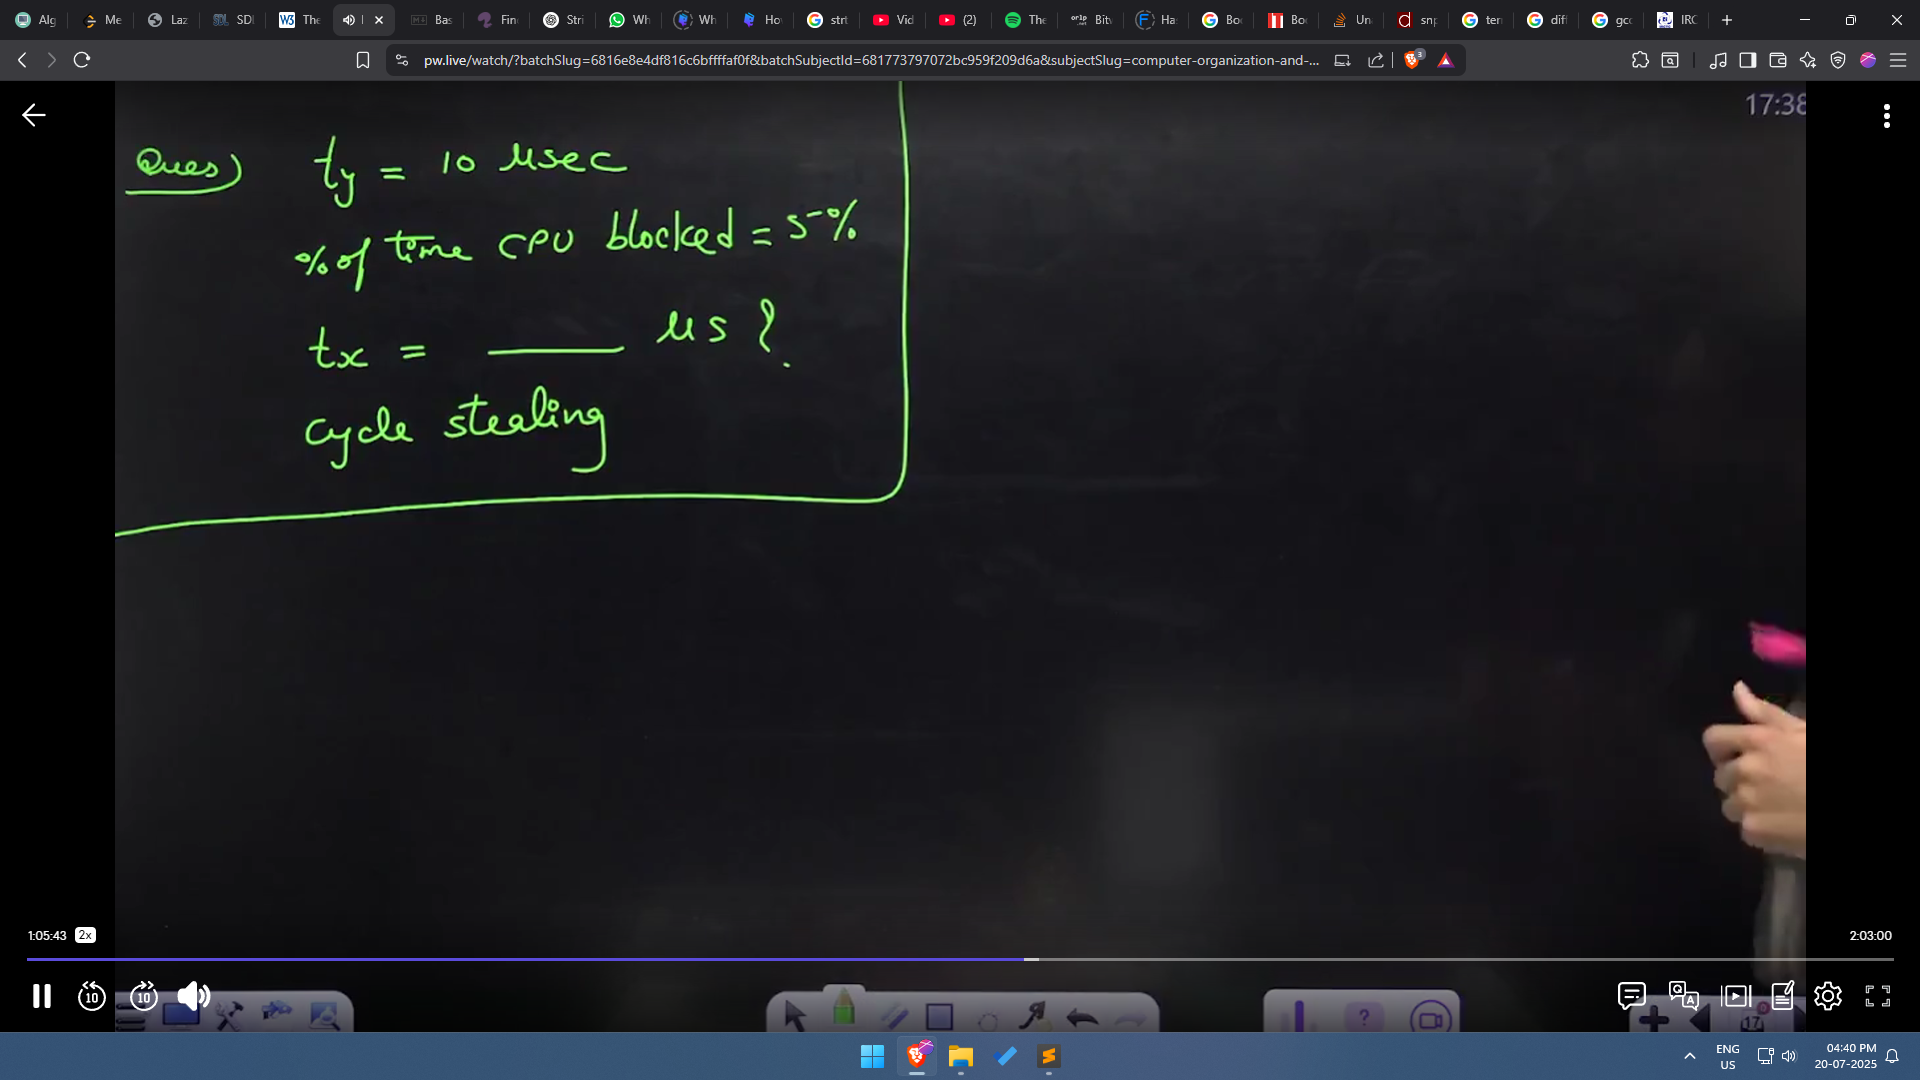 Alg
Me
Laz
SDI
The
Bas
Fin
Stri
Wh
Wh
Ho
strt
Vid
(2)
The
Bitv
Ha
Boo
Boo
Un
snp
terr
diff
gcc
IRC
pw.live/watch/?batchSlug=6816e8e4df816c6bffffaf0f&batchSubjectId=681773797072bc959f209d6a&subjectSlug=computer-organization-and-...
3
17:38
Ques) ty = 10 μsec
% of time CPU blocked = 5%
tx = ______ μs ?
cycle stealing
1:05:43 2x
2:03:00
10 10
17
ENG
US
04:40 PM
20-07-2025